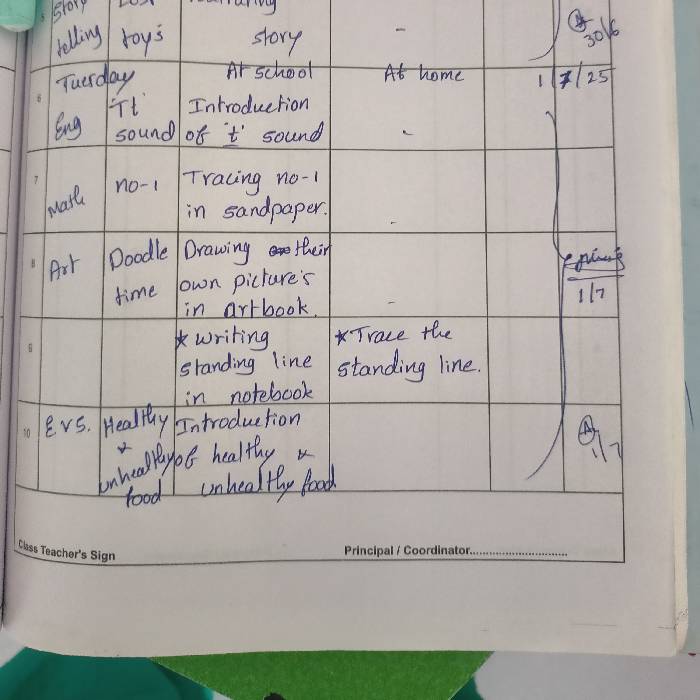 story
telling toys story -
30/6
Tuesday At school At home 1/7/25
6
Eng 'Tt' Introduction
sound of 't' sound -
7
Math no-1 Tracing no-1
in sandpaper. -
8 Art Doodle Drawing their
time own picture's
in artbook. -
1/7
9 * Writing * Trace the
standing line standing line.
in notebook
10 EVS. Healthy Introduction
& unhealthy of healthy &
food unhealthy food
1/7
Class Teacher's Sign Principal / Coordinator..............................